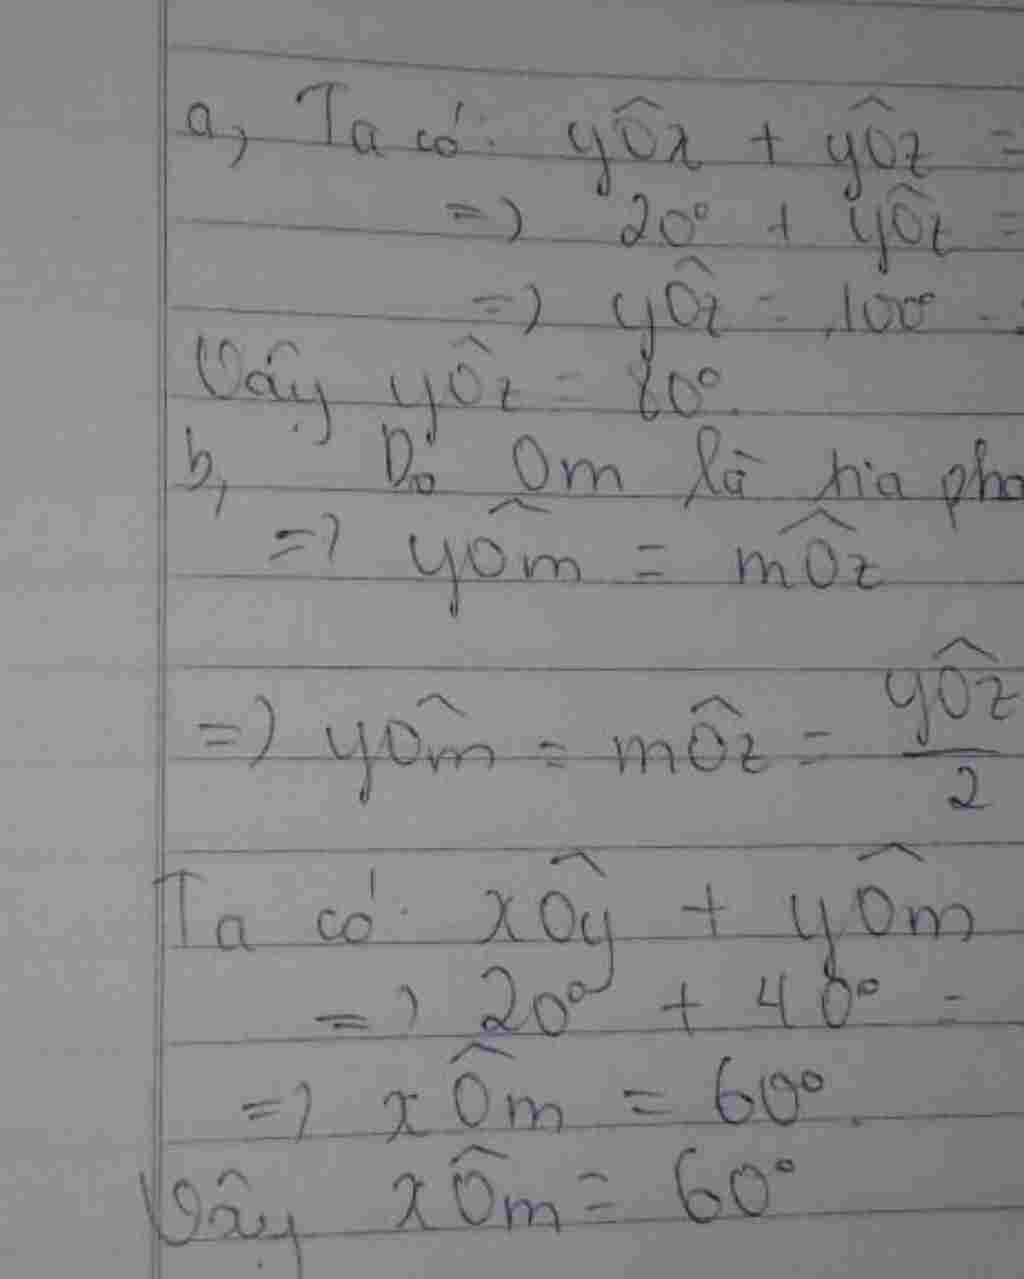 a, Ta có: yÔx + yÔz =
=> 20° + yÔz =
=> yÔz = 100° -
Vậy yÔz = 80°.
b, Do Om là tia
=> yÔm = mÔz
=> yÔm = mÔz = yÔz/2
Ta có: xÔy + yÔm
=> 20° + 40° =
=> xÔm = 60°.
Vậy xÔm = 60°